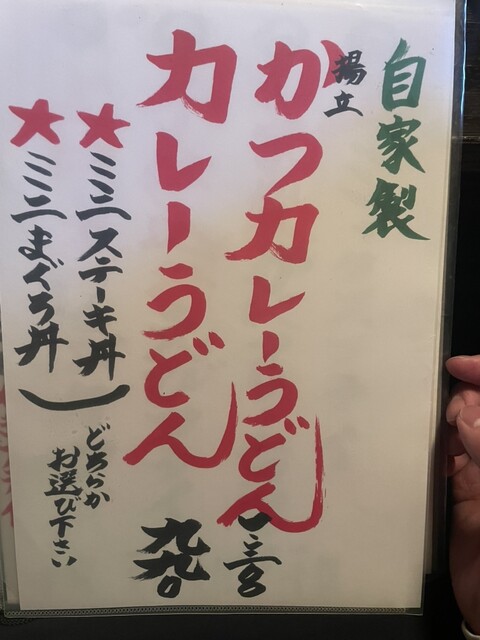 自家製
揚立
かつカレーうどん
一、三〇〇
カレーうどん
九九〇
★ミニステーキ丼
★ミニまぐろ丼
どちらか
お選び下さい